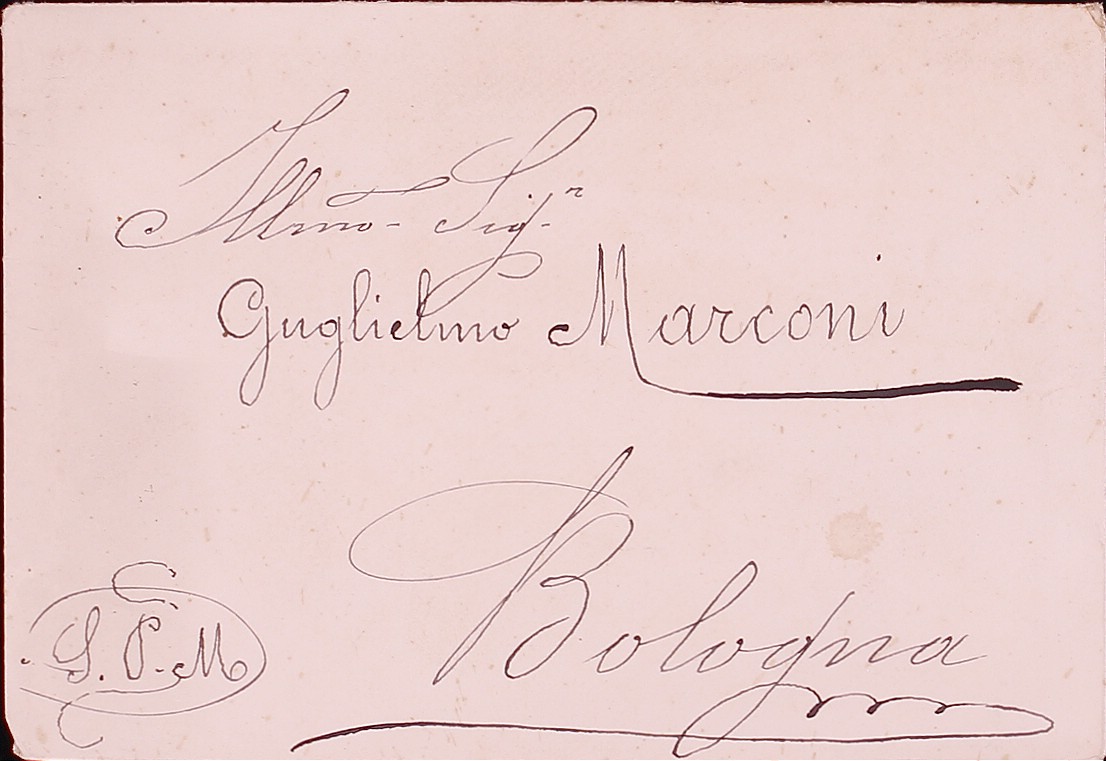 Illmo- Sigr.
Guglielmo Marconi
Bologna
S. P. M